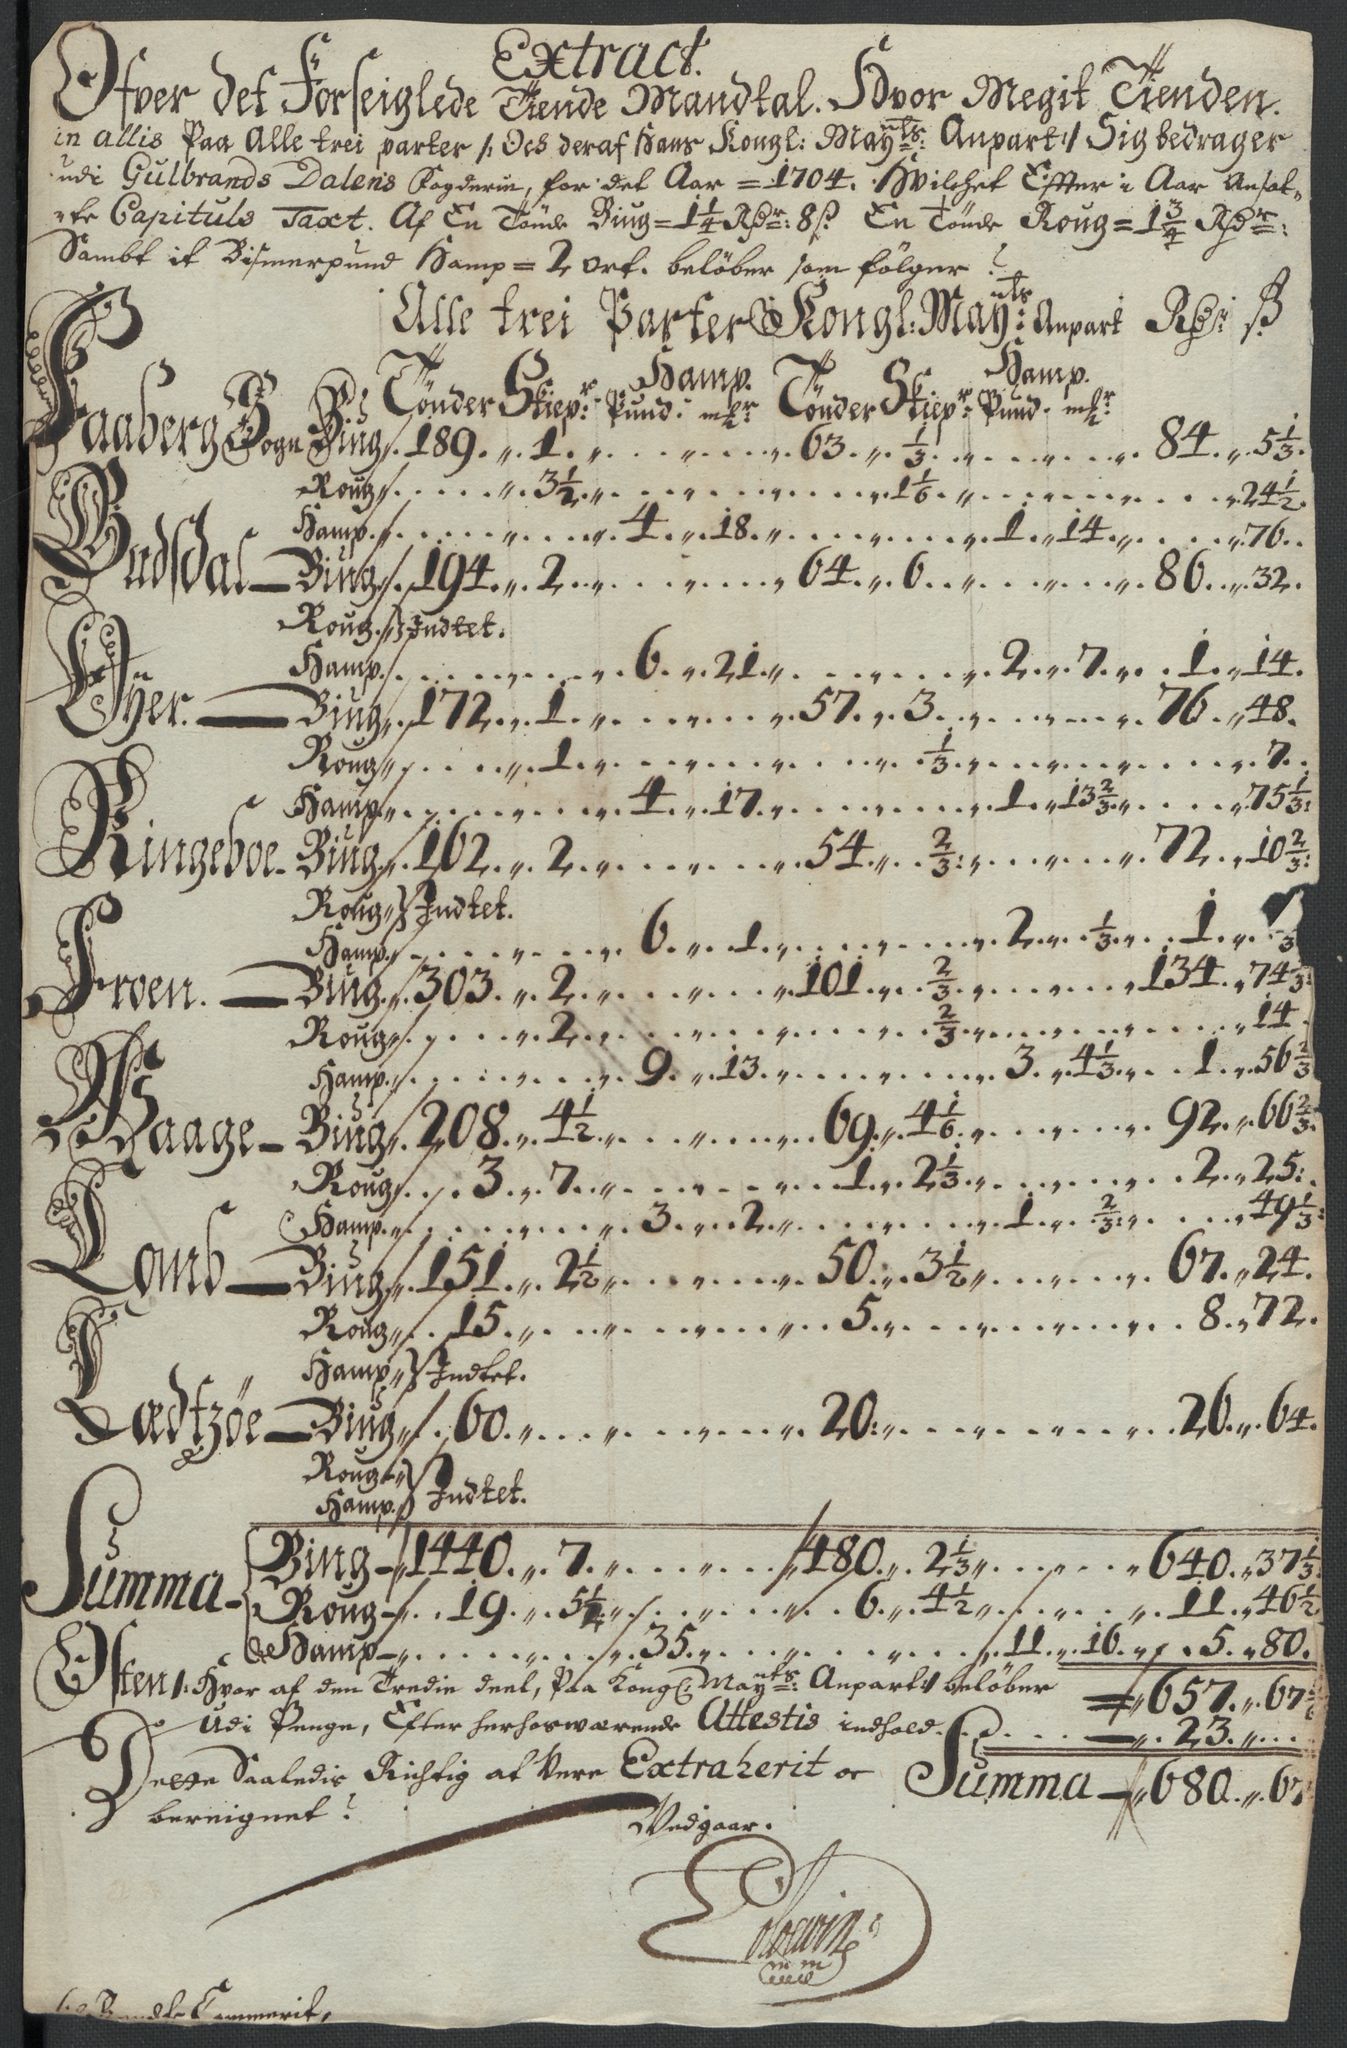 Extract.
Ofver det Forseiglede Tiende Mandtal. Hvor Megit Tienden.
in allis Paa Alle trei parter /: Och deraf Hans Kongl: Mayts: Anpart :/ Sig bedrager
udi Gulbrands Dalens Fogderie, for det Aar = 1704. Hvilchet Effter i Aar Ansat-
te Capituls Taxt. Af En Tønde Biug = 1 1/4 Rdr: 8 ß. En Tønde Roug = 1 3/4 Rdr:
Sambt it Bismerpund Hamp = 2 ort. beløber som følger
Alle trei Parter Kongl: Mayts: Anpart Rdr ß
Hamp. Hamp.
Tønder Skiepr: Pund. mkr Tønder Skiepr: Pund. mkr
Faaberg Sogn Biug 189 1 63 1/3 84 5 1/3
Roug 3 1/2 1 1/6 24 1/2
Hamp 4 18 1 14 76
Gudsdal Biug 194 2 64 6 86 32
Roug Indtet.
Hamp 6 21 2 7 1 14
Øyer Biug 172 1 57 3 76 48
Roug 1 1/3 7
Hamp 4 17 1 13 2/3 75 1/3
Ringeboe Biug 162 2 54 2/3 72 10 2/3
Roug Indtet.
Hamp 6 1 2 1/3 1
Froen Biug 303 2 101 2/3 134 74 1/3
Roug 2 2/3 14
Hamp 9 13 3 4 1/3 1 56 2/3
Waage Biug 208 4 1/2 69 4 1/6 92 66 2/3
Roug 3 7 1 2 1/3 2 25
Hamp 3 2 1 2/3 49 1/3
Lomb Biug 151 2 1/2 50 3 1/2 67 24
Roug 15 5 8 72
Hamp Indtet.
Lædtzøe Biug 60 20 26 64
Roug
Hamp Indtet.
Summa Biug 1440 7 480 2 1/3 640 37 1/3
Roug 19 5 1/2 6 4 1/2 11 46 1/2
Hamp 35 11 16 5 80
Osten /: Hvor af den Tredie deel, Paa Kongl: Mayts: Anpart :/ beløber 657 67
Udi Penge, Efter herhosværende Attestis indhold 23
Dette Saaledis Richtig at Vere Extraherit oc Summa 680 67
bereignet
Vedgaar.